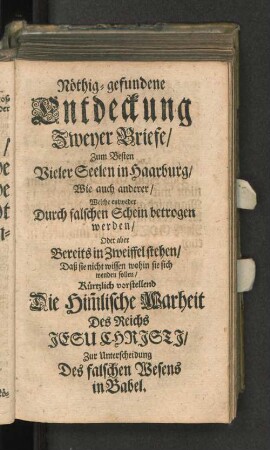 Nöthig-gefundene
Entdeckung
Zweyer Briefe/
Zum Besten
Vieler Seelen in Haarburg/
Wie auch anderer/
Welche entweder
Durch falschen Schein betrogen
werden/
Oder aber
Bereits in Zweiffel stehen/
Daß sie nicht wissen wohin sie sich
wenden sollen/
Kürtzlich vorstellend
Die Himlische Warheit
Des Reichs
JESU CHRISTI/
Zur Unterscheidung
Des falschen Wesens
in Babel.